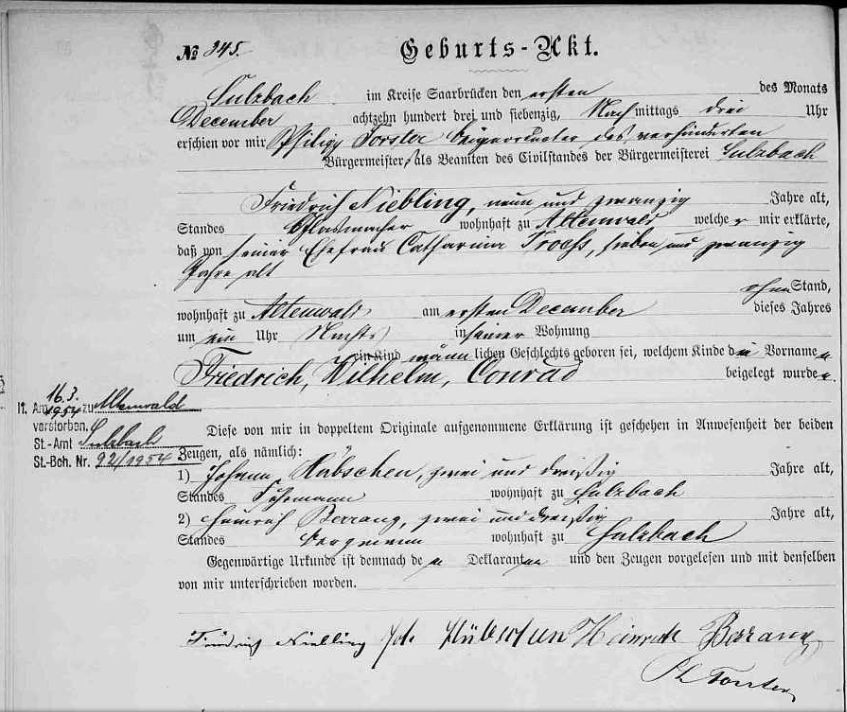 № 345. Geburts-Akt.
Sulzbach im Kreise Saarbrücken den ersten des Monats
December achtzehn hundert drei und siebenzig, Nachmittags drei Uhr
erschien vor mir Philipp Forster Beigeordneter des verhinderten
Bürgermeisters als Beamten des Civilstandes der Bürgermeisterei Sulzbach
Friedrich Niebling, neun und zwanzig Jahre alt,
Standes Glasmacher wohnhaft zu Altenwald welcher mir erklärte,
daß von seiner Ehefrau Catharina, sieben und zwanzig
Jahre alt
ohne Stand,
wohnhaft zu Altenwald am ersten December dieses Jahres
um ein Uhr Nachts in seiner Wohnung
ein Kind männlichen Geschlechts geboren sei, welchem Kinde die Vornamen
Friedrich, Wilhelm, Conrad beigelegt wurden.
16.3.
1954 zu Altenwald
verstorben.
St.-Amt Sulzbach
St.-Boh. Nr. 92/1954
Diese von mir in doppeltem Originale aufgenommene Erklärung ist geschehen in Anwesenheit der beiden
Zeugen, als nämlich:
1) Johann Hübschen, zwei und dreißig Jahre alt,
Standes Fuhrmann wohnhaft zu Sulzbach
2) Heinrich Berrang, zwei und dreißig Jahre alt,
Standes Bergmann wohnhaft zu Sulzbach
Gegenwärtige Urkunde ist demnach dem Deklaranten und den Zeugen vorgelesen und mit denselben
von mir unterschrieben worden.
Friedrich Niebling Joh. Hübschen Heinrich Berrang
Ph Forster